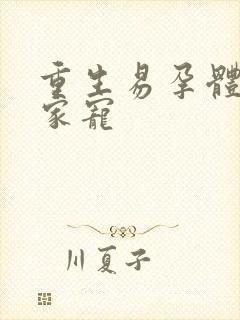 重生易孕體
家寵
川夏子